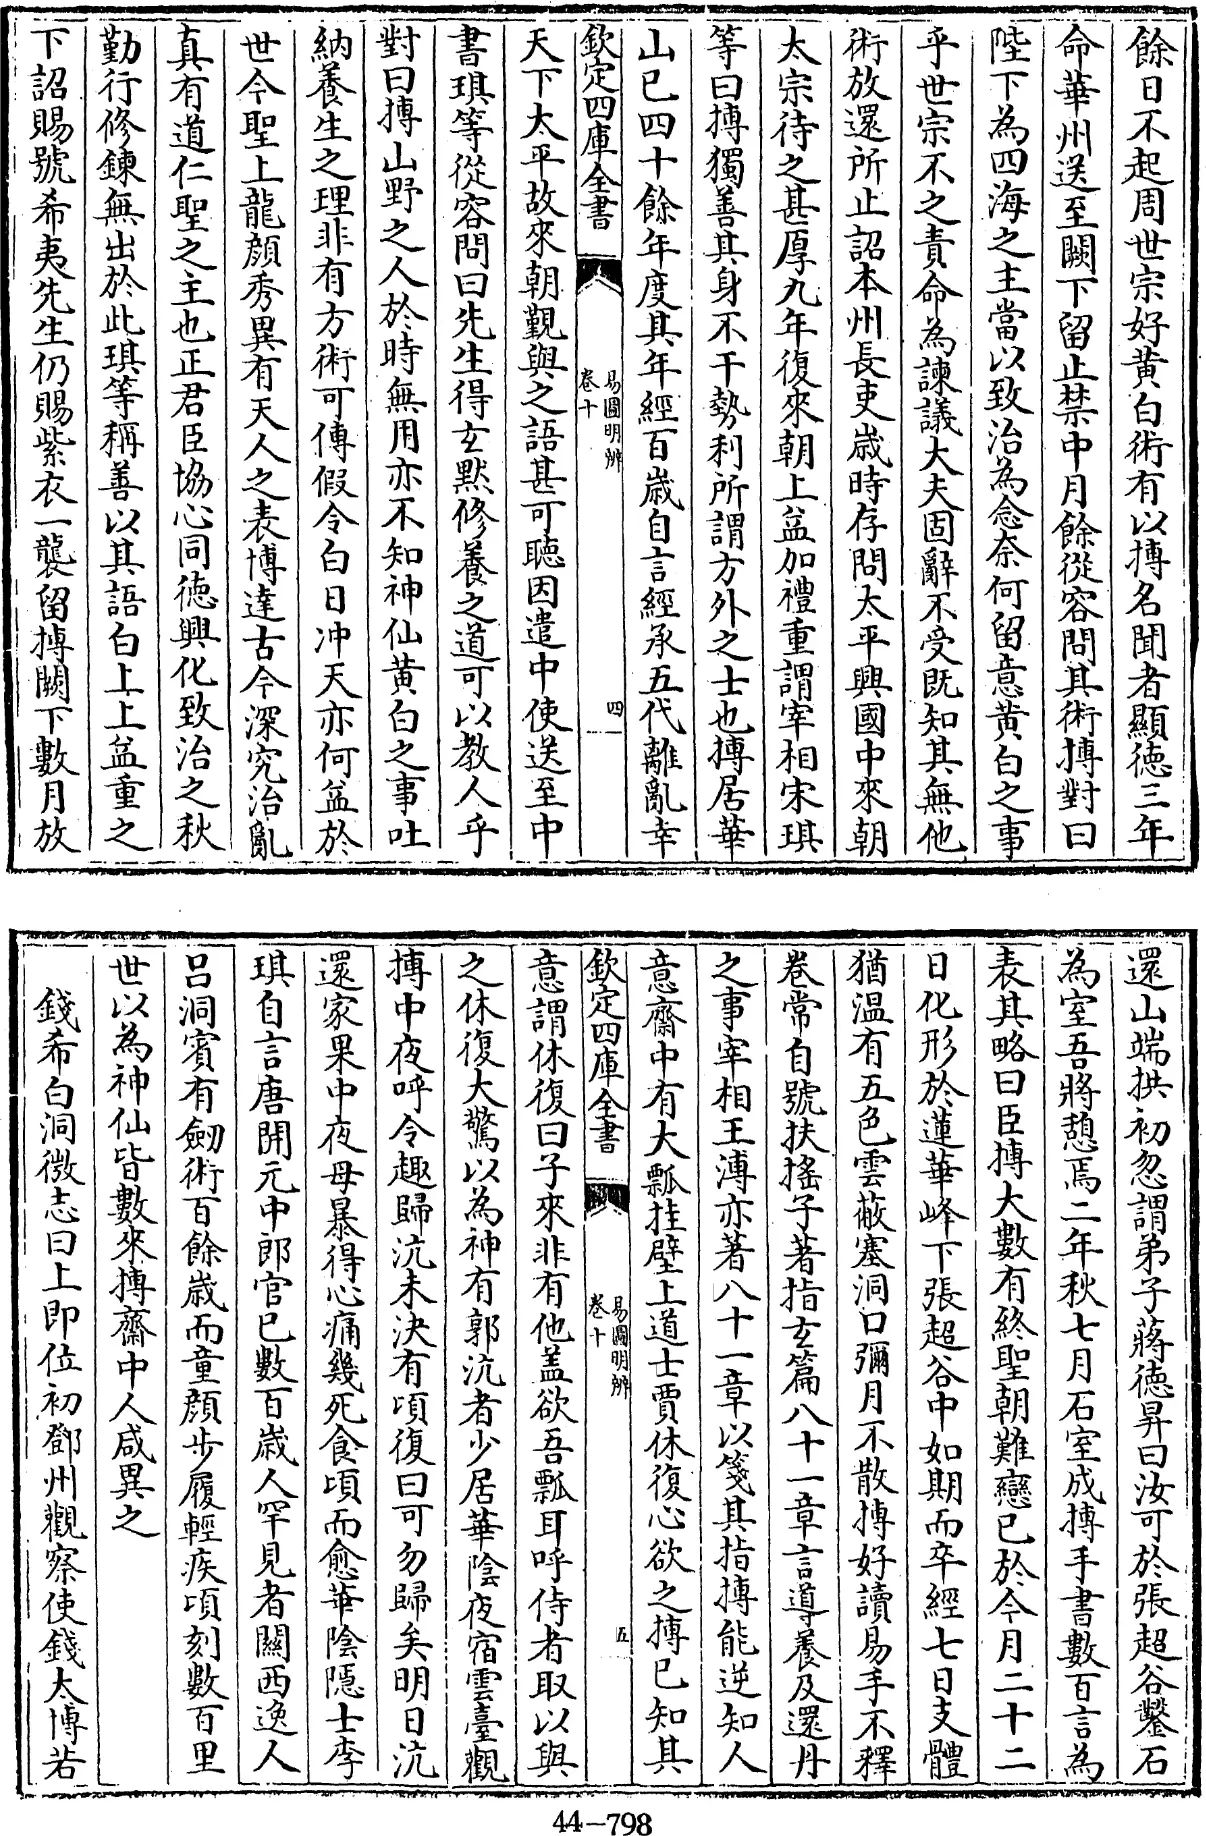 餘日不起周世宗好黄白術有以摶名聞者顯徳三年
命華州送至闕下留止禁中月餘從容問其術摶對曰
陛下為四海之主當以致治為念奈何留意黄白之事
乎世宗不之責命為諫議大夫固辭不受既知其無他
術放還所止詔本州長吏歳時存問太平興國中來朝
太宗待之甚厚九年復來朝上益加禮重謂宰相宋琪
等曰摶獨善其身不干勢利所謂方外之士也摶居華
山已四十餘年度其年經百歳自言經承五代離亂幸
欽定四庫全書
易圖明辨
卷十
四
天下太平故來朝覲與之語甚可聴因遣中使送至中
書琪等從容問曰先生得玄默修養之道可以教人乎
對曰摶山野之人於時無用亦不知神仙黄白之事吐
納養生之理非有方術可傳假令白日冲天亦何益於
世今聖上龍顔秀異有天人之表博達古今深究治亂
真有道仁聖之主也正君臣協心同徳興化致治之秋
勤行修鍊無出於此琪等稱善以其語白上上益重之
下詔賜號希夷先生仍賜紫衣一襲留摶闕下數月放
還山端拱初忽謂弟子蔣徳昇曰汝可於張超谷鑿石
為室吾將憩焉二年秋七月石室成摶手書數百言為
表其略曰臣摶大數有終聖朝難戀已於今月二十二
日化形於蓮華峰下張超谷中如期而卒經七日支體
猶温有五色雲蔽塞洞口彌月不散摶好讀易手不釋
卷常自號扶搖子著指玄篇八十一章言導養及還丹
之事宰相王溥亦著八十一章以箋其指摶能逆知人
意齋中有大瓢挂壁上道士賈休復心欲之摶已知其
欽定四庫全書
易圖明辨
卷十
五
意謂休復曰子來非有他盖欲吾瓢耳呼侍者取以與
之休復大驚以為神有郭沆者少居華陰夜宿雲臺觀
摶中夜呼令趣歸沆未決有頃復曰可勿歸矣明日沆
還家果中夜母暴得心痛幾死食頃而愈華陰隱士李
琪自言唐開元中郎官已數百歳人罕見者關西逸人
吕洞賓有劒術百餘歳而童顔步履輕疾頃刻數百里
世以為神仙皆數來摶齋中人咸異之
錢希白洞微志曰上即位初鄧州觀察使錢太博若
44-798